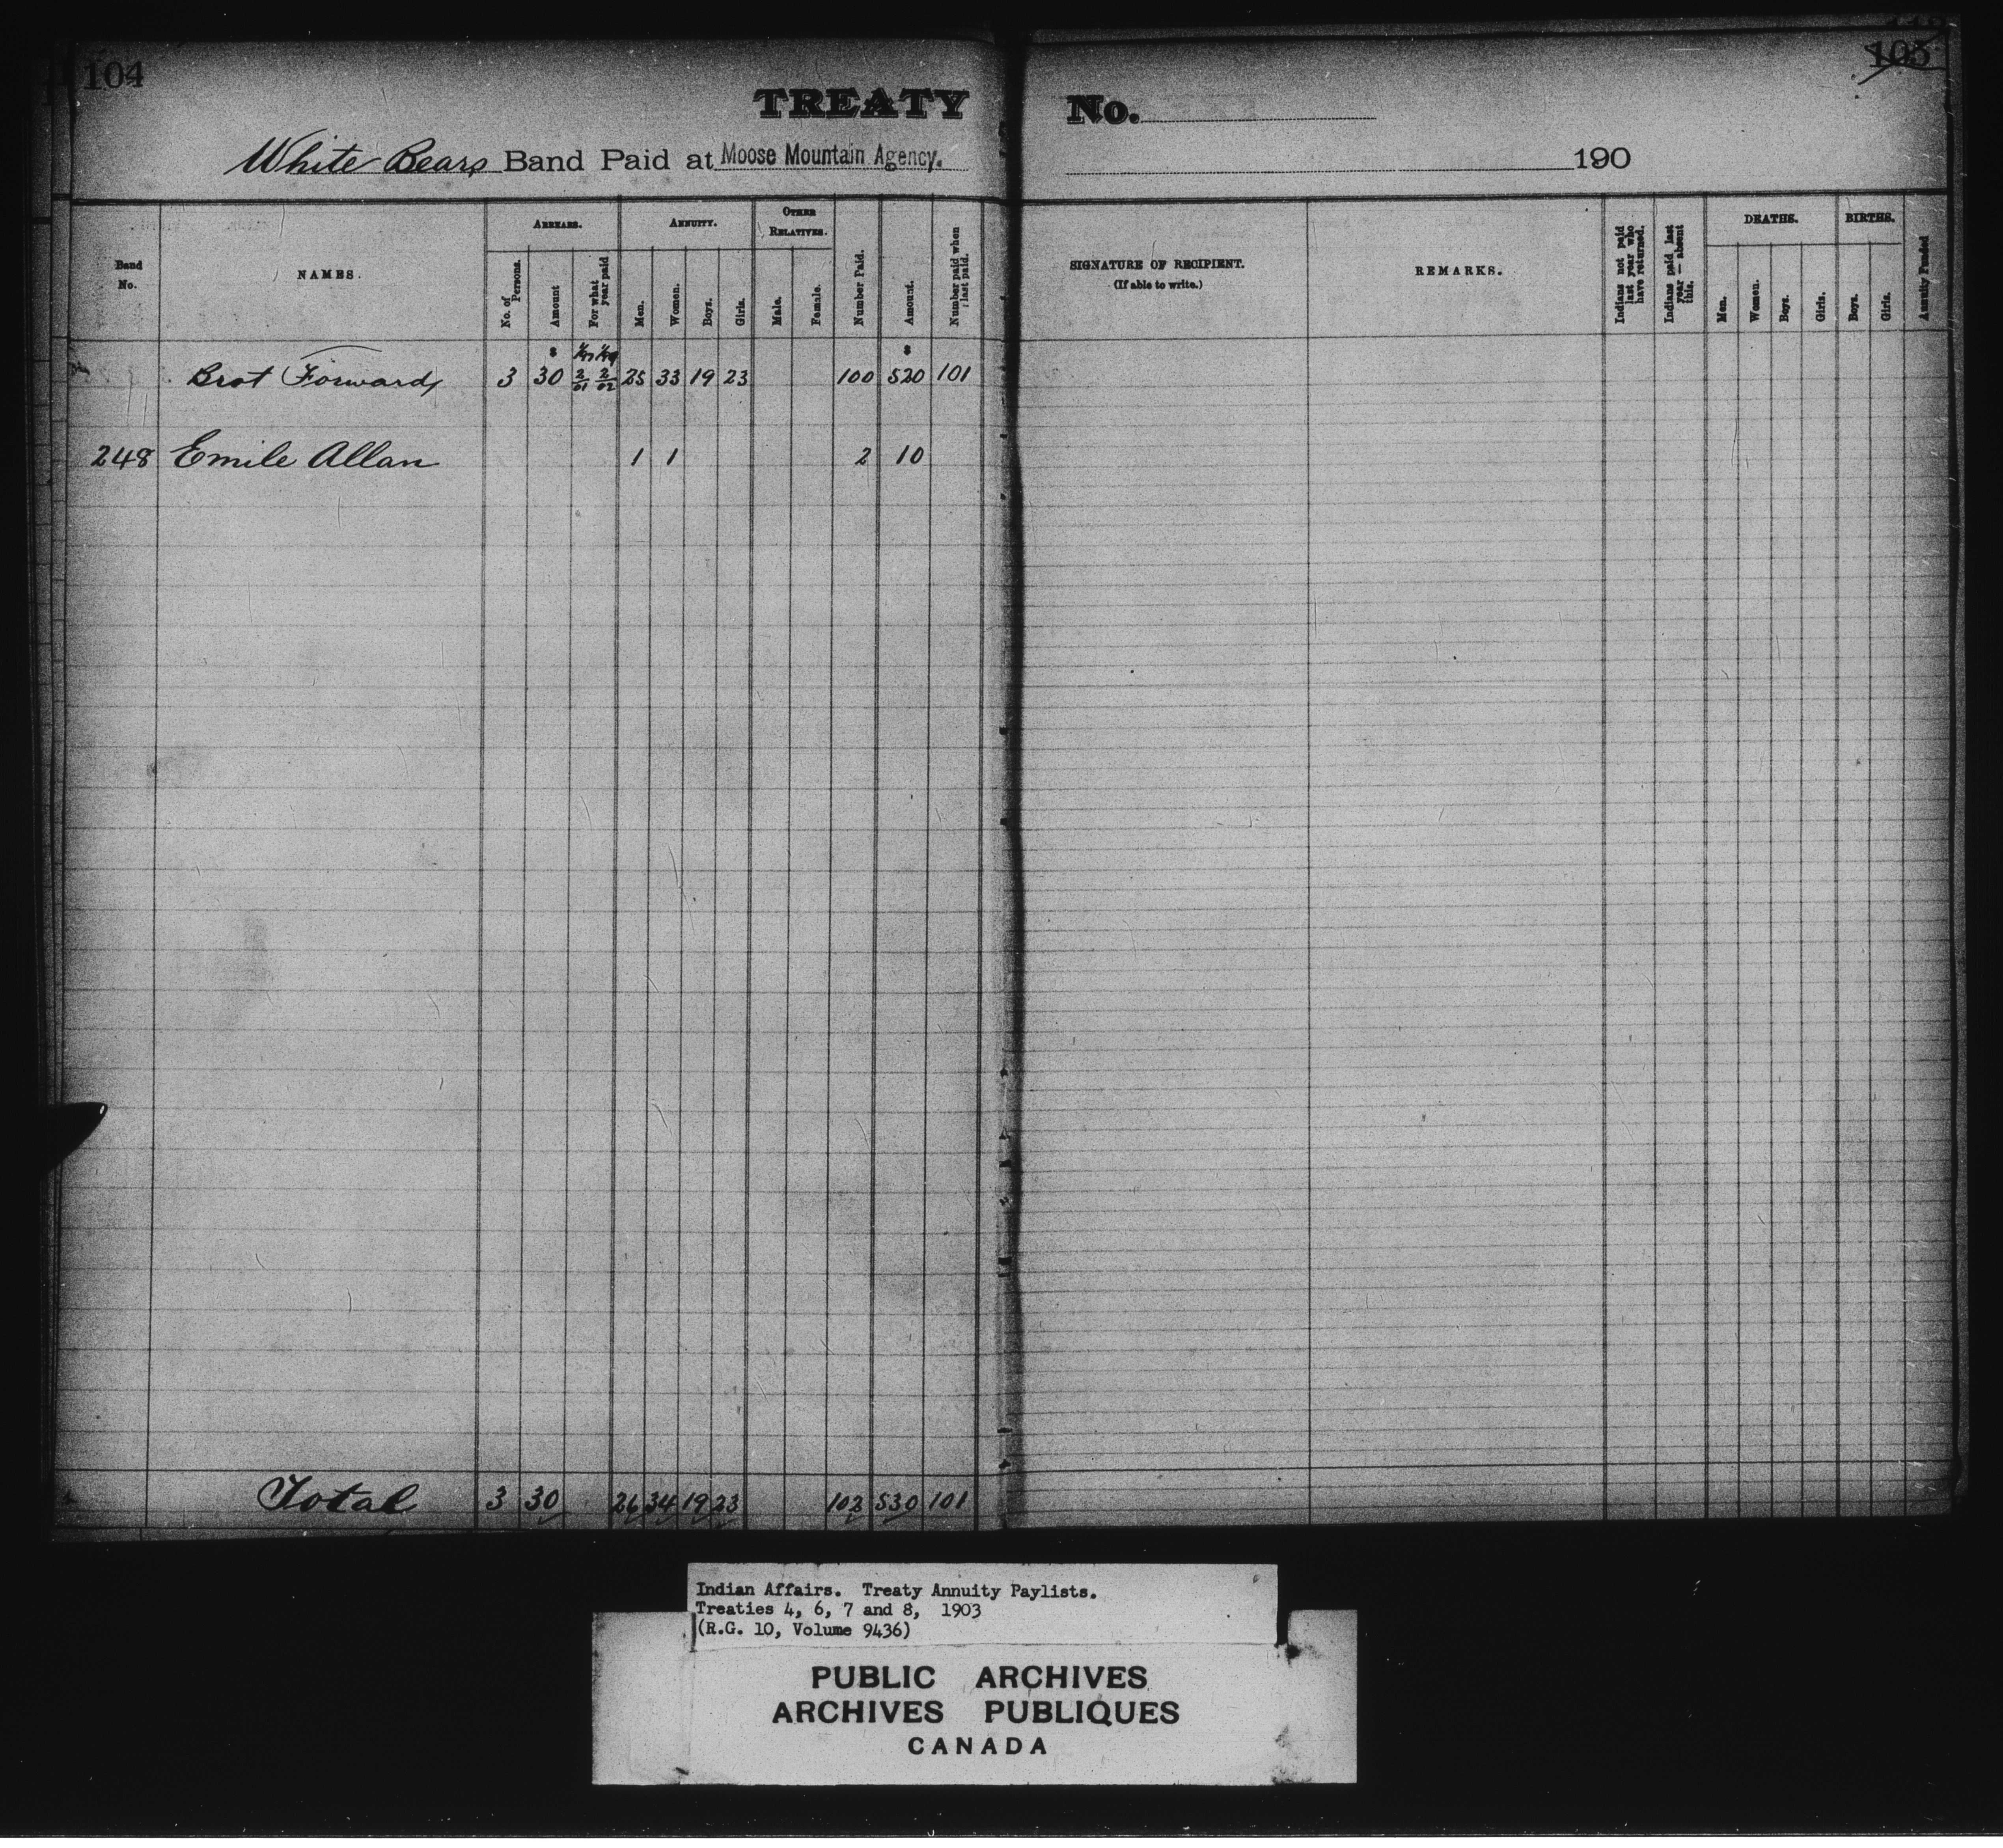 104
105
TREATY No. 
White Bears Band Paid at Moose Mountain Agency. 190
Band No.
NAMES.
ARREARS.
No. of Persons.
Amount
For what year paid
ANNUITY.
Men.
Women.
Boys.
Girls.
OTHER RELATIVES.
Male.
Female.
Number Paid.
Amount.
Number paid when last paid.
SIGNATURE OF RECIPIENT.
(If able to write.)
REMARKS.
Indians not paid last year who have returned.
Indians paid last year — absent this.
DEATHS.
Men.
Women.
Boys.
Girls.
BIRTHS.
Boys.
Girls.
Annuity Funded
Brot Forward 3 $30 2/01 2/02 25 33 19 23 100 $520 101
248 Emile Allan 1 1 2 10
Total 3 30 26 34 19 23 102 530 101
Indian Affairs. Treaty Annuity Paylists.
Treaties 4, 6, 7 and 8, 1903
(R.G. 10, Volume 9436)
PUBLIC ARCHIVES
ARCHIVES PUBLIQUES
CANADA